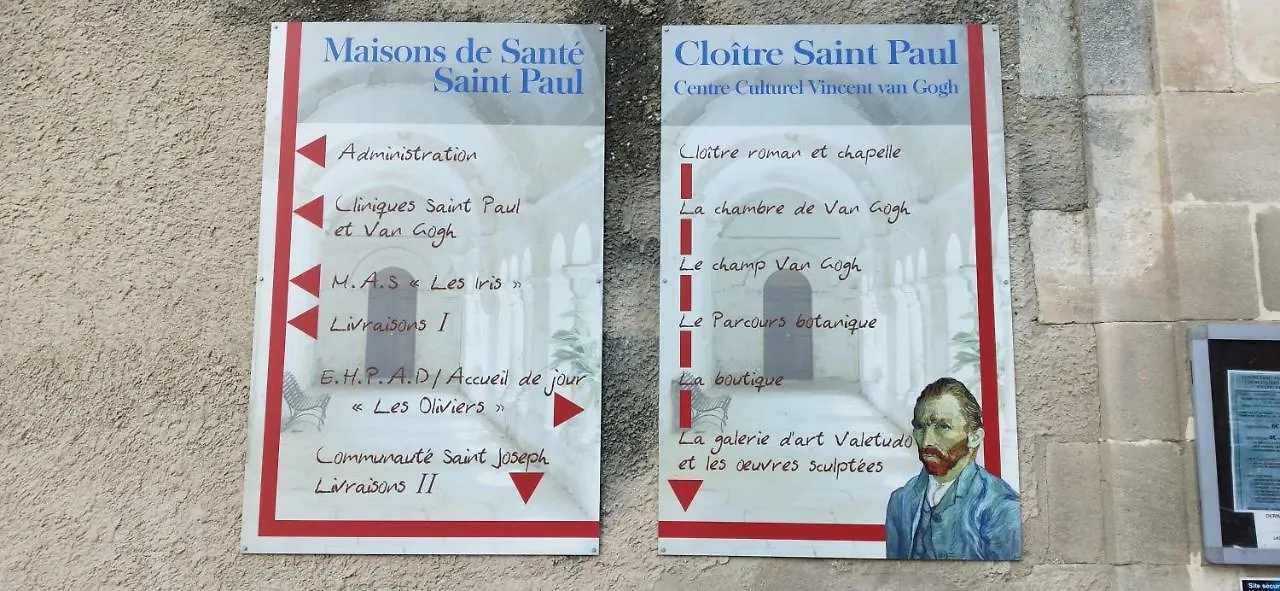 Maisons de Santé
Saint Paul
Administration
Cliniques Saint Paul
et Van Gogh
M.A.S « Les Iris »
Livraisons I
E.H.P.A.D / Accueil de jour
« Les Oliviers »
Communauté Saint Joseph
Livraisons II
Cloître Saint Paul
Centre Culturel Vincent van Gogh
Cloître roman et chapelle
La chambre de Van Gogh
Le champ Van Gogh
Le Parcours botanique
La boutique
La galerie d'art Valetudo
et les oeuvres sculptées